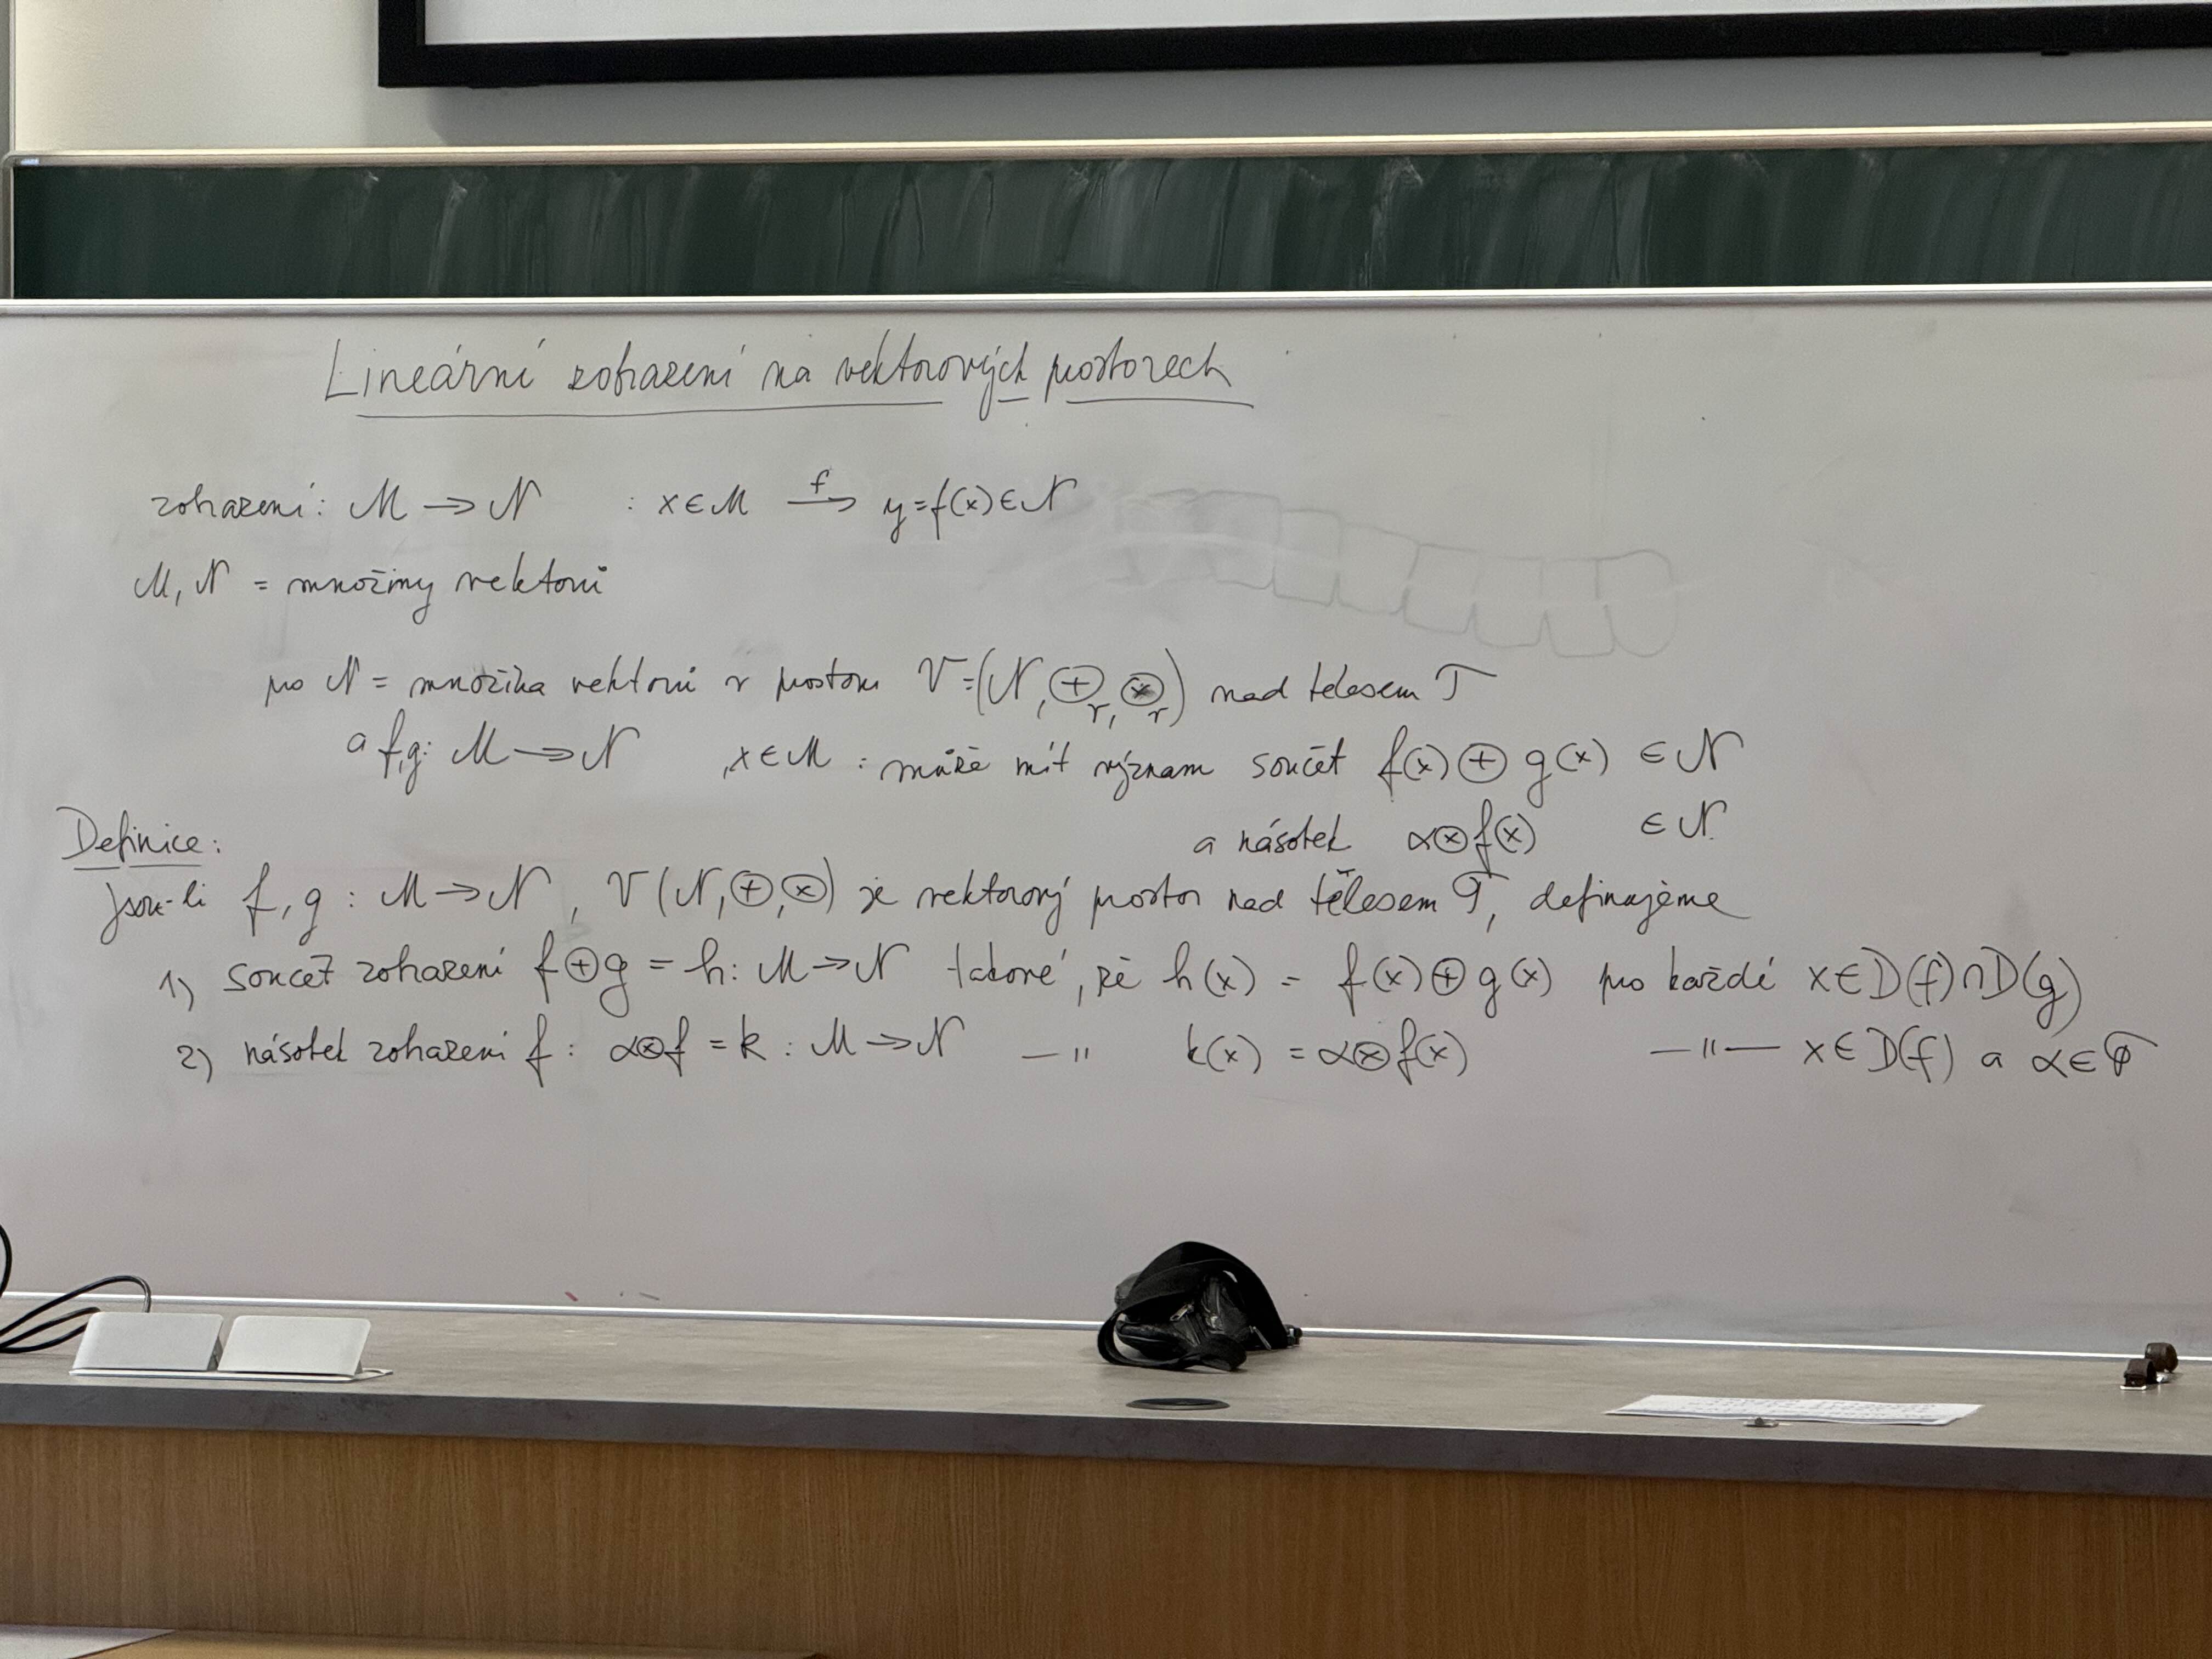 Lineární zobrazení na vektorových prostorech
zobrazení: M → N : x∈M —f→ y=f(x)∈N
M, N = množiny vektorů
pro N = množina vektorů v prostoru V=(N, ⊕_V, ⊗_V) nad tělesem T
a f,g: M → N , x∈M : může mít význam součet f(x) ⊕ g(x) ∈ N
a násobek α⊗f(x) ∈ N
Definice:
Jsou-li f, g : M → N , V(N,⊕,⊗) je vektorový prostor nad tělesem T, definujeme
1) součet zobrazení f⊕g = h: M → N takové, že h(x) = f(x)⊕g(x) pro každé x∈D(f)∩D(g)
2) násobek zobrazení f: α⊗f = k : M → N —〃 k(x) = α⊗f(x) —〃— x∈D(f) a α∈T